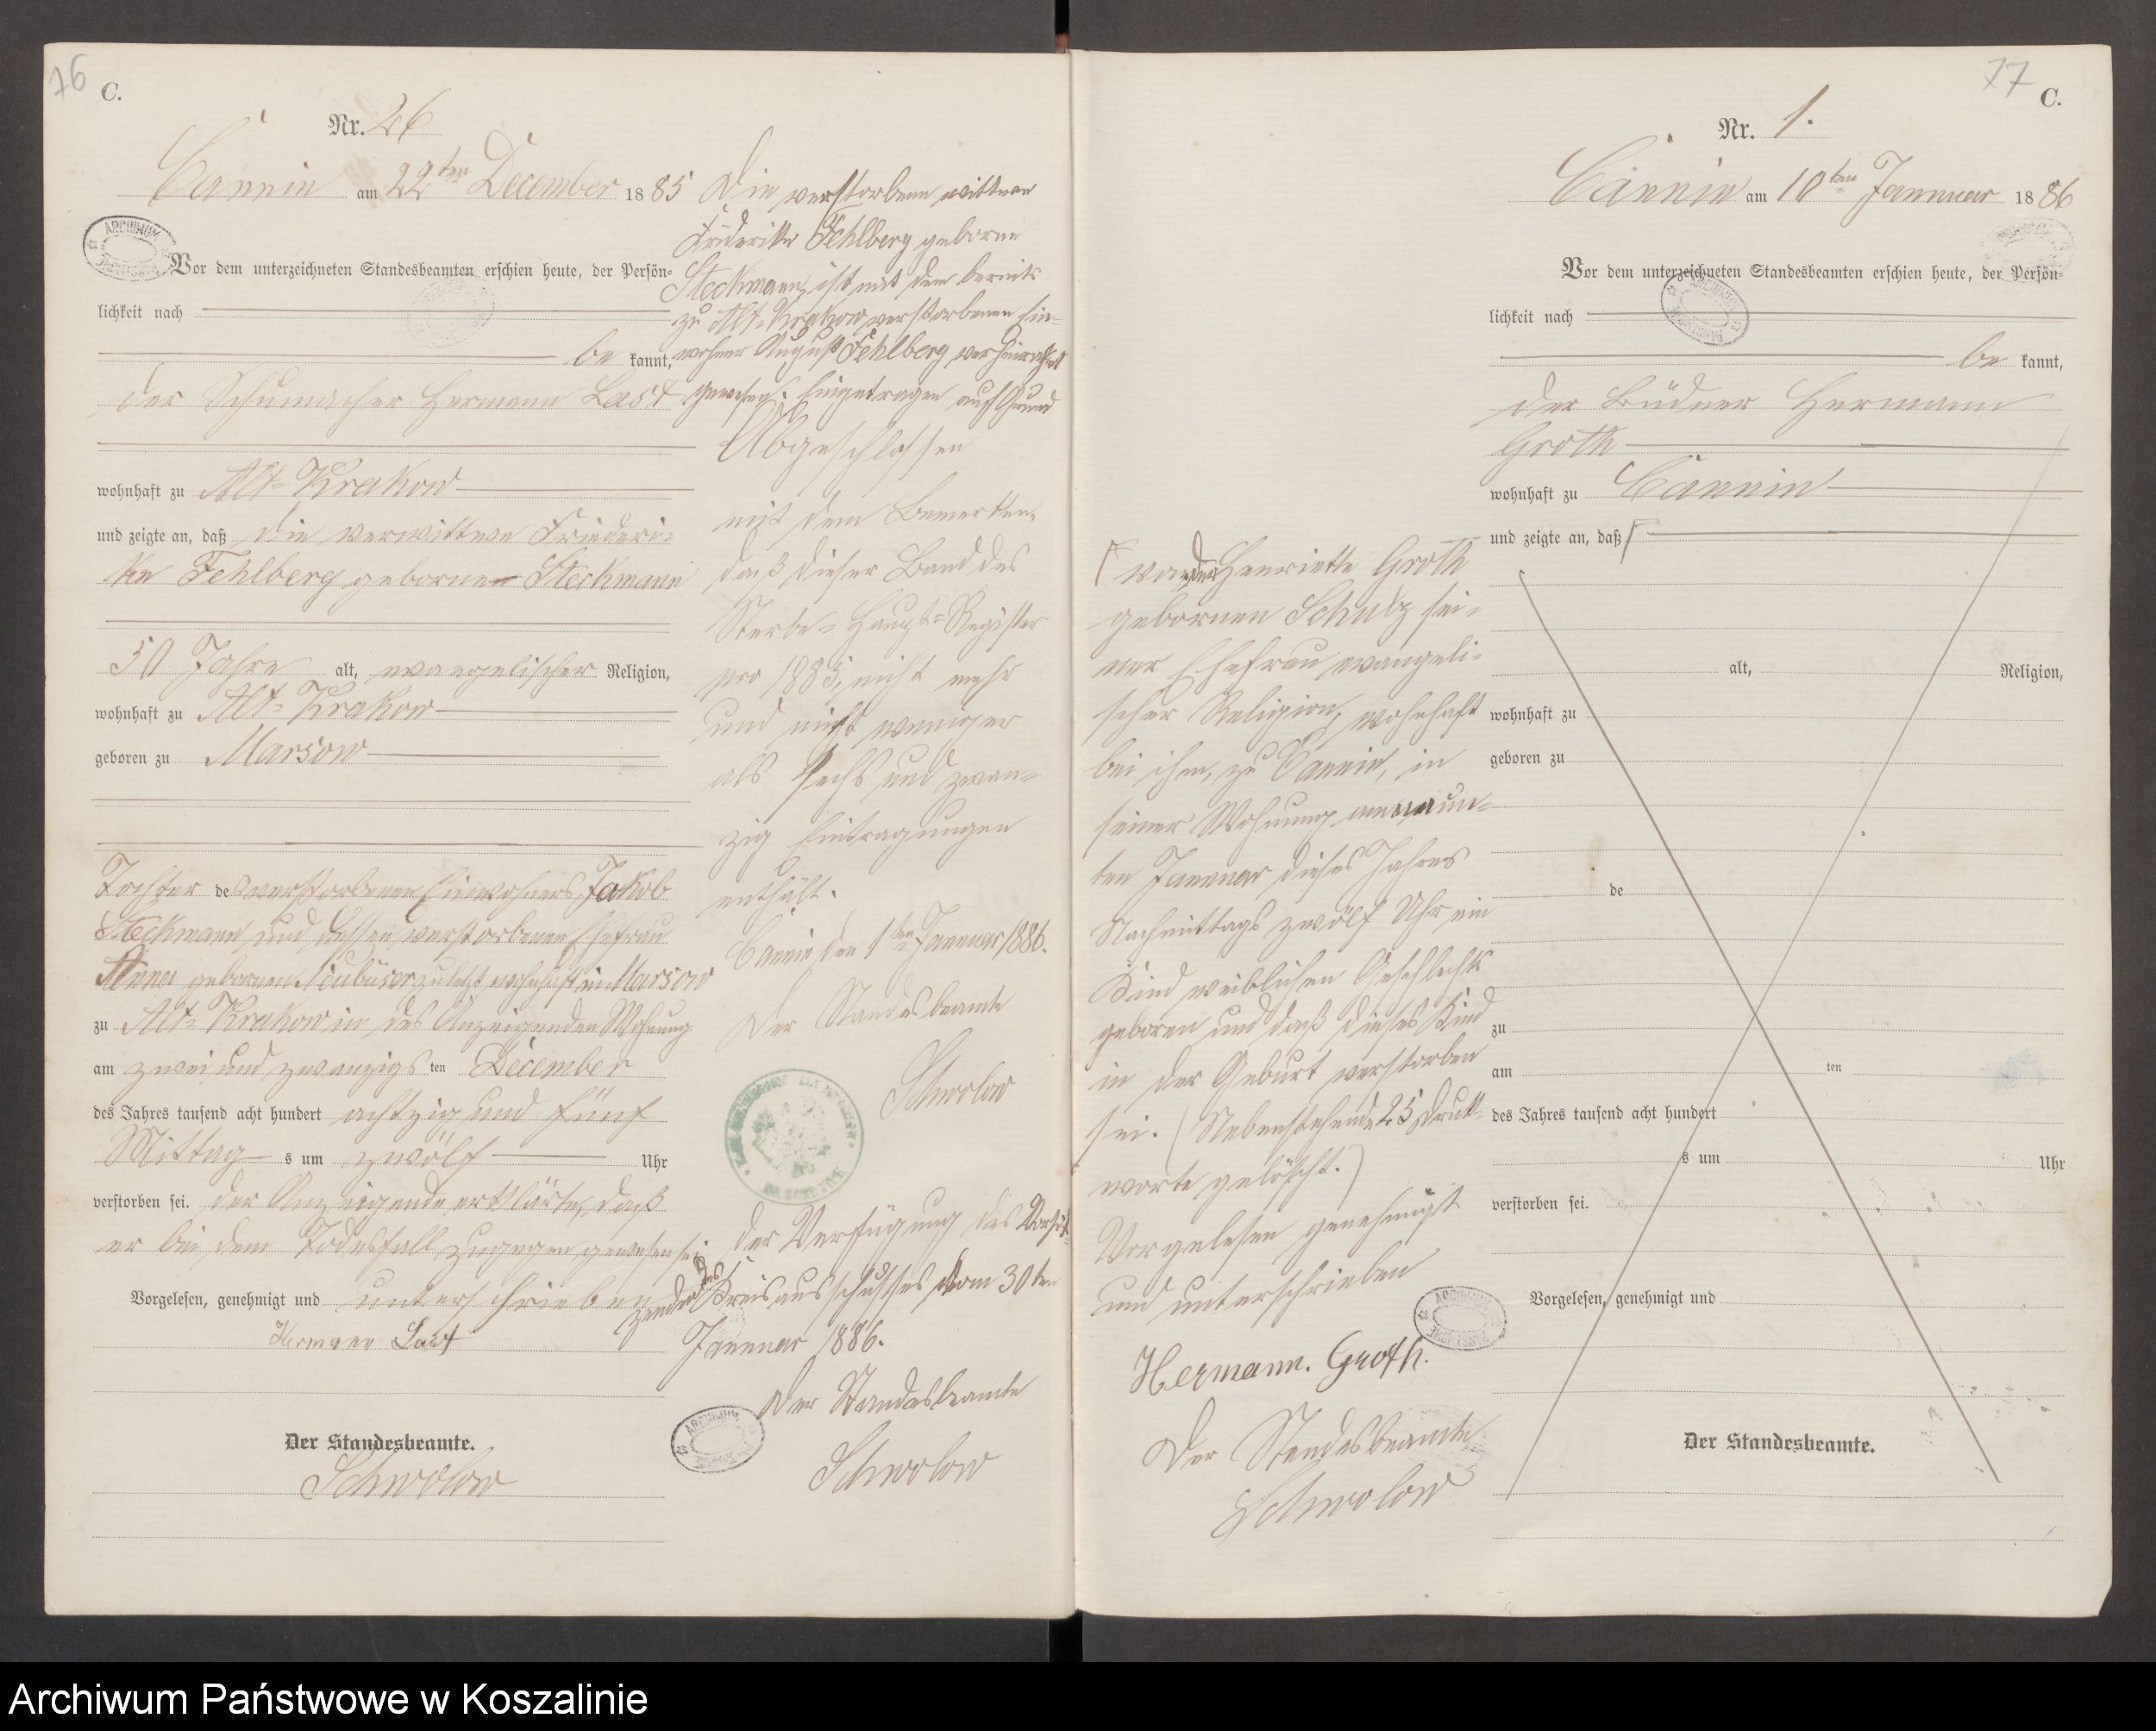 76
C.
Nr. 26
Cannin am 22ten December 1885
Vor dem unterzeichneten Standesbeamten erschien heute, der Persön-
lichkeit nach
be kannt,
der Schumacher Hermann Last
wohnhaft zu Alt-Krakow
und zeigte an, daß die verwittwe Friederi-
ke Fehlberg geborne Steckmann
50 Jahre alt, evangelischer Religion,
wohnhaft zu Alt-Krakow
geboren zu Marsow
Tochter des verstorbenen Einwohners Jakob
Steckmann und dessen verstorbenen Ehefrau
Anna gebornen Neubüser zuletzt wohnhaft in Marsow
zu Alt-Krakow in des Anzeigenden Wohnung
am zwei und zwanzigsten December
des Jahres tausend acht hundert achtzig und fünf
Mittags um zwölf Uhr
verstorben sei. der Anzeigende erklärte, daß
er bei dem Todesfall zugegen gewesen sei
Vorgelesen, genehmigt und unterschrieben
Hermann Last
Der Standesbeamte.
Schwolow
Die verstorbene wittwe
Friderike Fehlberg geborne
Steckmann, ist mit dem bereits
zu Alt-Krakow verstorbenen Ein-
wohner August Fehlberg verheirathet
gewesen. Eingetragen auf Grund
Abgeschlossen
mit dem Bemerken,
daß dieser Band des
Sterbe-Haupt-Register
pro 1885, nicht mehr
und nicht weniger
als sechs und zwan-
zig Eintragungen
enthält.
Cannin den 1ten Januar 1886.
Der Standesbeamte
Schwolow
der Verfügung des Vorsit-
zenden des Kreisausschusses vom 30ten
Januar 1886.
Der Standesbeamte
Schwolow
77
C.
Nr. 1.
Cannin am 10ten Januar 1886
Vor dem unterzeichneten Standesbeamten erschien heute, der Persön-
lichkeit nach
be kannt,
der Büdner Hermann
Groth
wohnhaft zu Cannin
und zeigte an, daß
von der Henriette Groth
gebornen Schulz sei-
ner Ehefrau evangeli-
scher Religion, wohnhaft
bei ihm, zu Cannin, in
seiner Wohnung am neun-
ten Januar dieses Jahres
Nachmittags zwölf Uhr ein
Kind weiblichen Geschlechts
geboren und daß dieses Kind
in der Geburt verstorben
sei. (Nebenstehende 25 Druck-
worte gelöscht.)
Vorgelesen genehmigt
und unterschrieben
Hermann. Groth.
Der Standesbeamte
Schwolow
alt, Religion,
wohnhaft zu
geboren zu
de
zu
am ten
des Jahres tausend acht hundert
s um Uhr
verstorben sei.
Vorgelesen, genehmigt und
Der Standesbeamte.
Archiwum Państwowe w Koszalinie